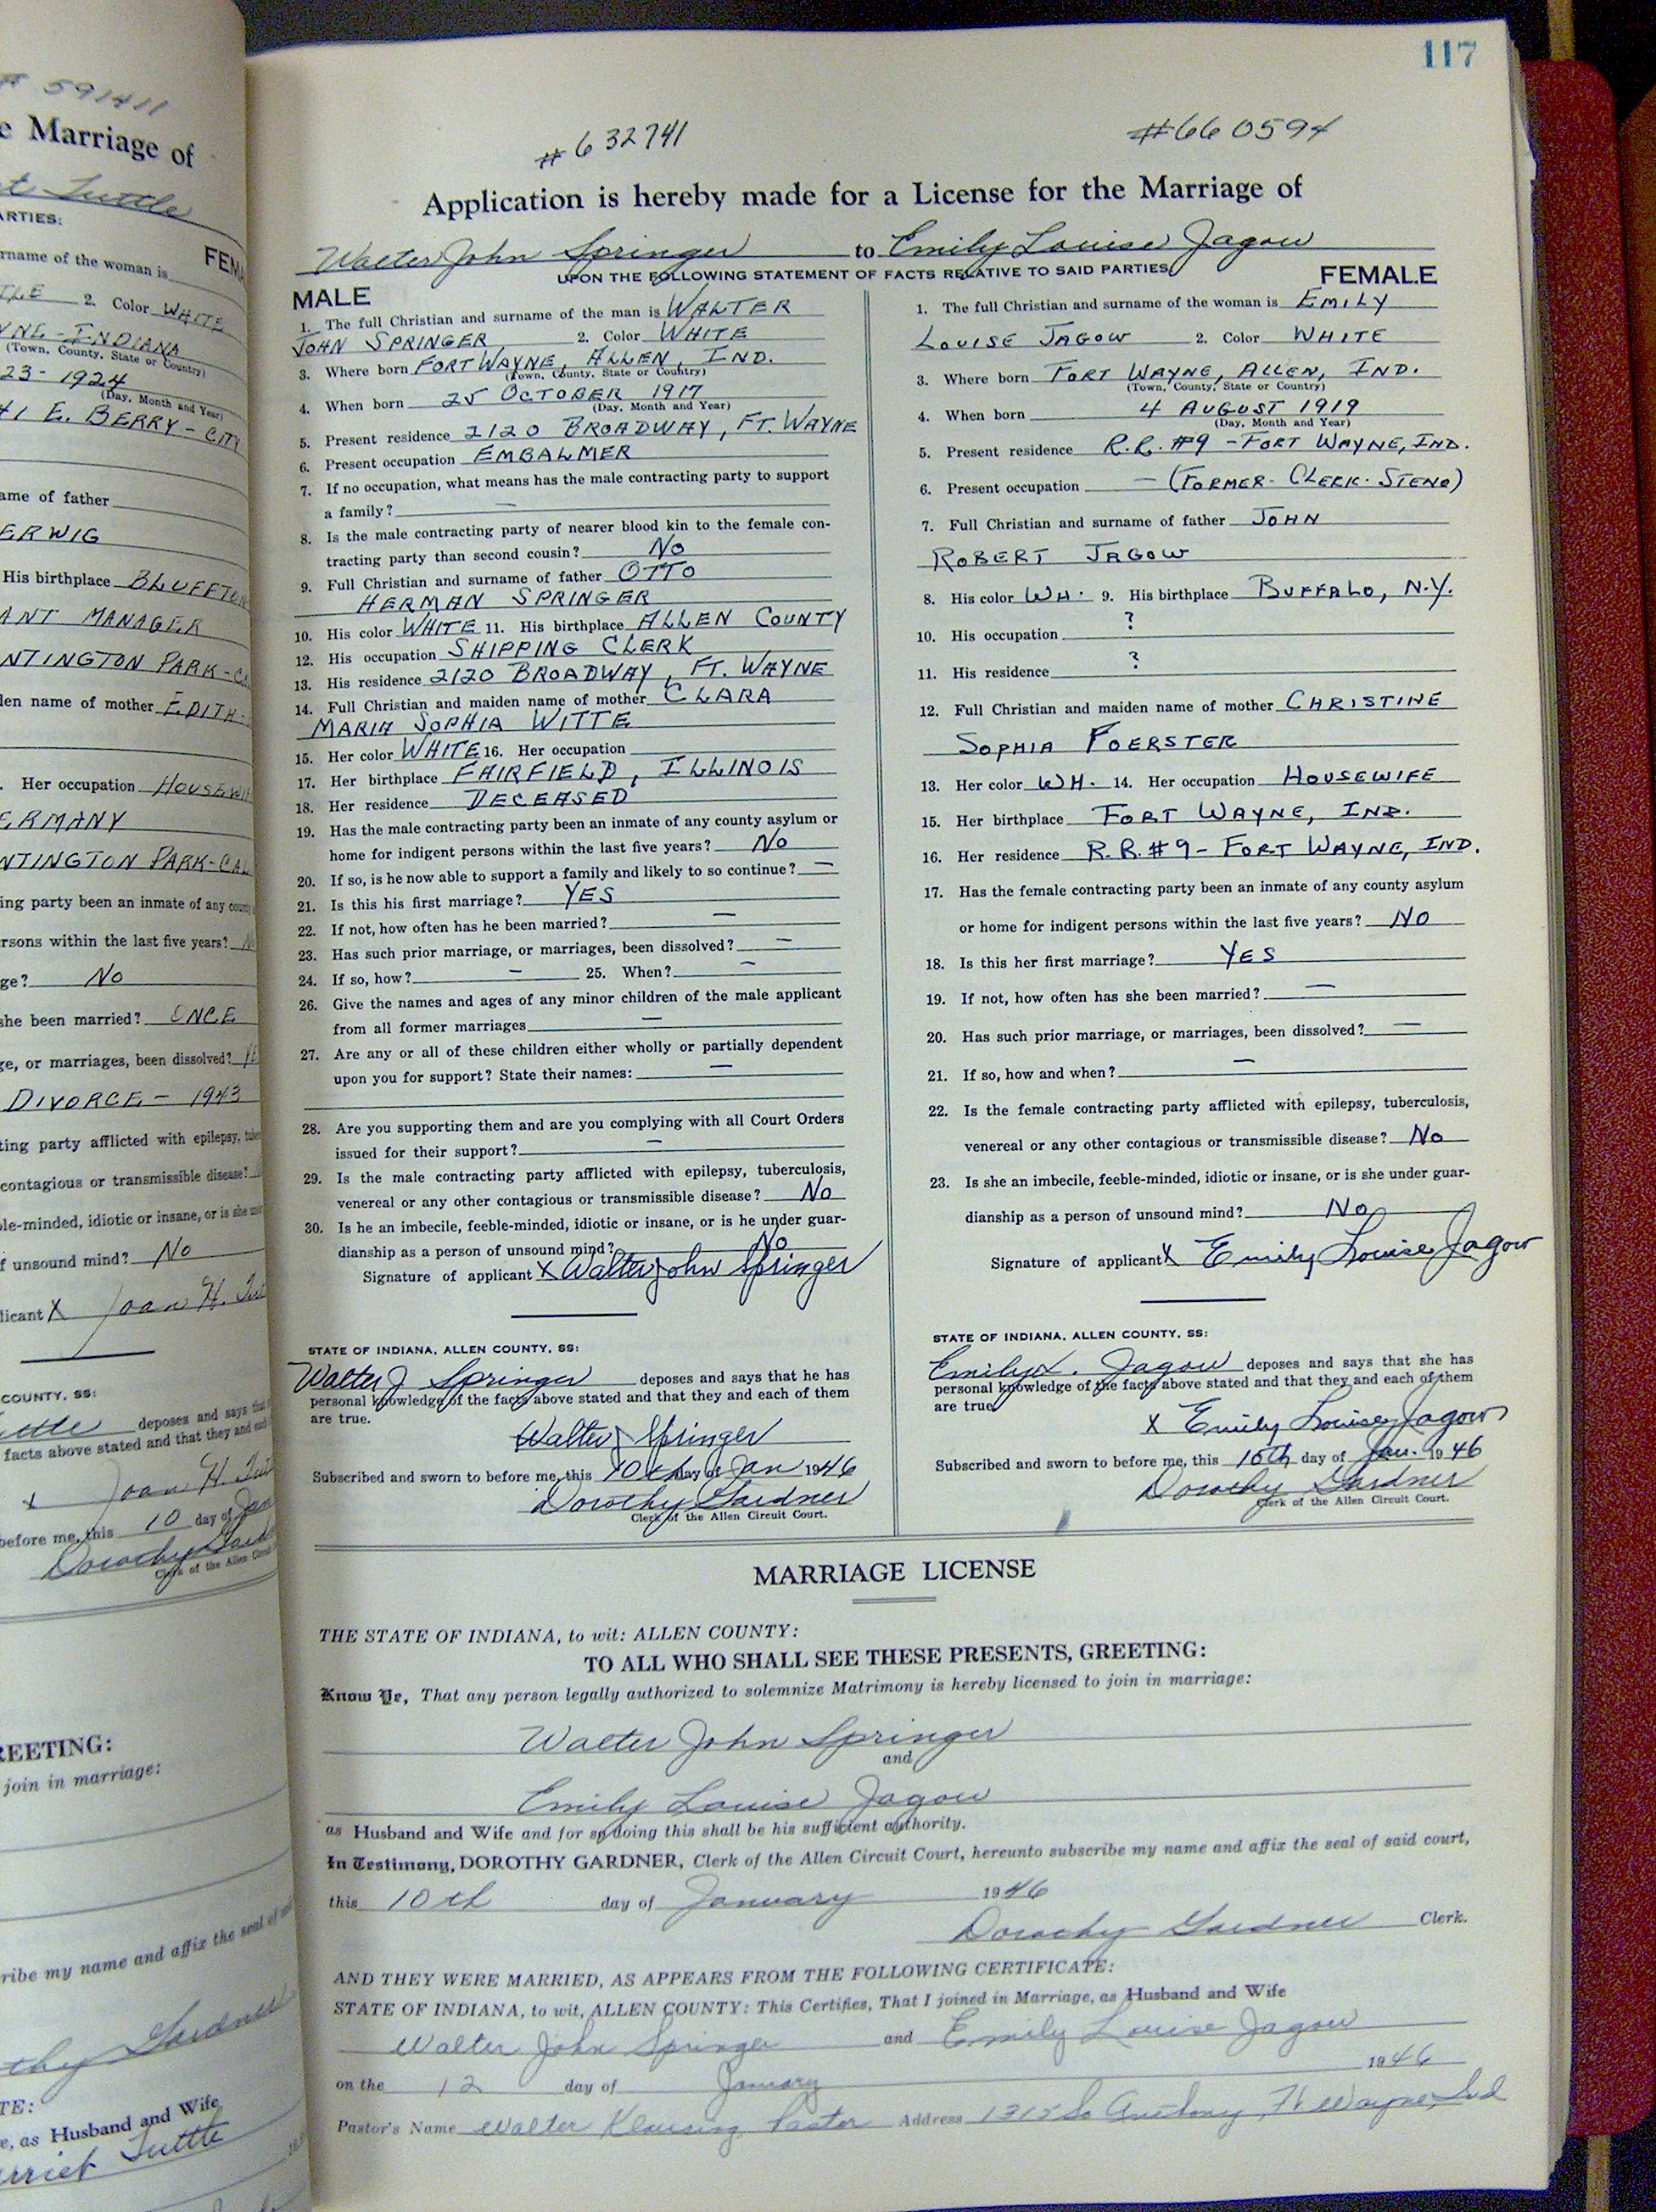 # 591411
e Marriage of
t Tuttle
ARTIES:
rname of the woman is
FEMA
TLE 2. Color WHITE
YNE - INDIANA
(Town, County, State or Country)
23 - 1924
(Day, Month and Year)
41 E. BERRY - CITY
ame of father
ERWIG
His birthplace BLUFFTON
ANT MANAGER
NTINGTON PARK - CA
den name of mother EDITH
. Her occupation HOUSEWI
ERMANY
NTINGTON PARK - CAL
ing party been an inmate of any county
rsons within the last five years? N
ge? No
she been married? ONCE
ge, or marriages, been dissolved? YE
DIVORCE - 1943
ting party afflicted with epilepsy, tuber
contagious or transmissible disease?
ble-minded, idiotic or insane, or is she un
f unsound mind? No
licant X Joan H. Tut
COUNTY, SS:
uttle deposes and says that
facts above stated and that they and each
x Joan H. Tut
before me, this 10 day of Jan
Dorothy Gard
Clerk of the Allen Circuit
REETING:
join in marriage:
ribe my name and affix the seal of said
thy Gardner
TE:
e, as Husband and Wife
rriet Tuttle
117
# 632741
#660594
Application is hereby made for a License for the Marriage of
Walter John Springer to Emily Louise Jagow
UPON THE FOLLOWING STATEMENT OF FACTS RELATIVE TO SAID PARTIES:
MALE
1. The full Christian and surname of the man is WALTER
JOHN SPRINGER 2. Color WHITE
3. Where born FORT WAYNE, ALLEN, IND.
(Town, County, State or Country)
4. When born 25 OCTOBER 1917
(Day, Month and Year)
5. Present residence 2120 BROADWAY, FT. WAYNE
6. Present occupation EMBALMER
7. If no occupation, what means has the male contracting party to support
a family? —
8. Is the male contracting party of nearer blood kin to the female con-
tracting party than second cousin? No
9. Full Christian and surname of father OTTO
HERMAN SPRINGER
10. His color WHITE 11. His birthplace ALLEN COUNTY
12. His occupation SHIPPING CLERK
13. His residence 2120 BROADWAY, FT. WAYNE
14. Full Christian and maiden name of mother CLARA
MARIA SOPHIA WITTE
15. Her color WHITE 16. Her occupation
17. Her birthplace FAIRFIELD, ILLINOIS
18. Her residence DECEASED
19. Has the male contracting party been an inmate of any county asylum or
home for indigent persons within the last five years? No
20. If so, is he now able to support a family and likely to so continue? —
21. Is this his first marriage? YES
22. If not, how often has he been married? —
23. Has such prior marriage, or marriages, been dissolved? —
24. If so, how? — 25. When? —
26. Give the names and ages of any minor children of the male applicant
from all former marriages —
27. Are any or all of these children either wholly or partially dependent
upon you for support? State their names: —
28. Are you supporting them and are you complying with all Court Orders
issued for their support? —
29. Is the male contracting party afflicted with epilepsy, tuberculosis,
venereal or any other contagious or transmissible disease? No
30. Is he an imbecile, feeble-minded, idiotic or insane, or is he under guar-
dianship as a person of unsound mind? No
Signature of applicant X Walter John Springer
STATE OF INDIANA, ALLEN COUNTY, SS:
Walter J Springer deposes and says that he has
personal knowledge of the facts above stated and that they and each of them
are true.
Walter J Springer
Subscribed and sworn to before me, this 10th day of Jan 1946
Dorothy Gardner
Clerk of the Allen Circuit Court.
FEMALE
1. The full Christian and surname of the woman is EMILY
LOUISE JAGOW 2. Color WHITE
3. Where born FORT WAYNE, ALLEN, IND.
(Town, County, State or Country)
4. When born 4 AUGUST 1919
(Day, Month and Year)
5. Present residence R.R. #9 - FORT WAYNE, IND.
6. Present occupation — (FORMER - CLERK - STENO)
7. Full Christian and surname of father JOHN
ROBERT JAGOW
8. His color WH. 9. His birthplace BUFFALO, N.Y.
10. His occupation ?
11. His residence ?
12. Full Christian and maiden name of mother CHRISTINE
SOPHIA FOERSTER
13. Her color WH. 14. Her occupation HOUSEWIFE
15. Her birthplace FORT WAYNE, IND.
16. Her residence R.R. #9 - FORT WAYNE, IND.
17. Has the female contracting party been an inmate of any county asylum
or home for indigent persons within the last five years? No
18. Is this her first marriage? YES
19. If not, how often has she been married? —
20. Has such prior marriage, or marriages, been dissolved? —
21. If so, how and when? —
22. Is the female contracting party afflicted with epilepsy, tuberculosis,
venereal or any other contagious or transmissible disease? No
23. Is she an imbecile, feeble-minded, idiotic or insane, or is she under guar-
dianship as a person of unsound mind? No
Signature of applicant X Emily Louise Jagow
STATE OF INDIANA, ALLEN COUNTY, SS:
Emily L. Jagow deposes and says that she has
personal knowledge of the facts above stated and that they and each of them
are true.
X Emily Louise Jagow
Subscribed and sworn to before me, this 10th day of Jan. 1946
Dorothy Gardner
Clerk of the Allen Circuit Court.
MARRIAGE LICENSE
THE STATE OF INDIANA, to wit: ALLEN COUNTY:
TO ALL WHO SHALL SEE THESE PRESENTS, GREETING:
Know Ye, That any person legally authorized to solemnize Matrimony is hereby licensed to join in marriage:
Walter John Springer
and
Emily Louise Jagow
as Husband and Wife and for so doing this shall be his sufficient authority.
In Testimony, DOROTHY GARDNER, Clerk of the Allen Circuit Court, hereunto subscribe my name and affix the seal of said court,
this 10th day of January 1946
Dorothy Gardner Clerk.
AND THEY WERE MARRIED, AS APPEARS FROM THE FOLLOWING CERTIFICATE:
STATE OF INDIANA, to wit, ALLEN COUNTY: This Certifies, That I joined in Marriage, as Husband and Wife
Walter John Springer and Emily Louise Jagow
on the 12 day of January 1946
Pastor's Name Walter Klausing Pastor Address 1315 So Anthony, Ft Wayne, Ind